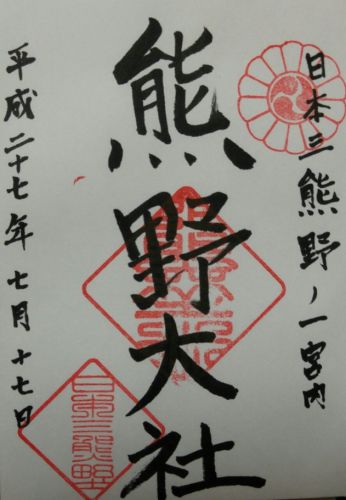 日本三熊野ノ一宮内
熊野大社
平成二十七年七月十七日
日本三熊野